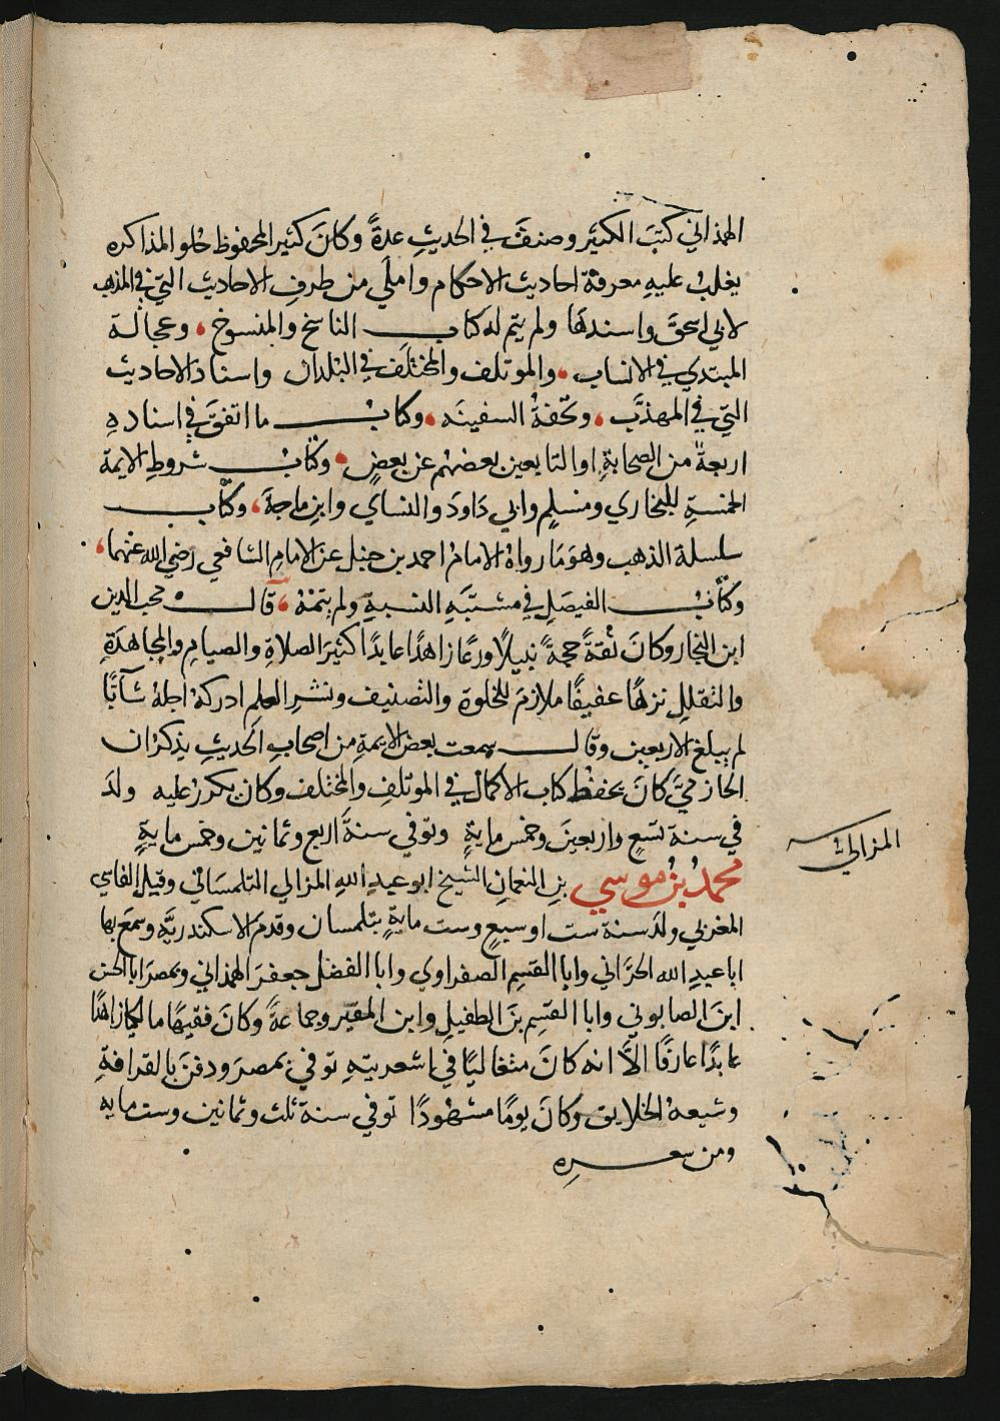 الهمذاني كتبَ الكثير وصنفَ في الحديثِ عدةً وكانَ كثير المحفوظ حلو المذاكره
يغلبُ عليهِ معرفة احاديث الاحكام واملَى من طرفِ الاحاديث التي في المذهب
لابي اسحقَ واسندهَا ولم يتم له كتاب الناسخ والمنسوخ، وعجالة
المبتدي في الانساب، والموتلف والمختلف في البلدان واسناد الاحاديث
التي في المهذَّب، وتحفةُ السفينَه، وكتابُ ما اتفقَ في اسنادهِ
اربعةً من الصحابةِ او التابعين بعضهُم عن بعضٍ، وكتابُ شروطِ الايمة
الخمسةِ للبخاري ومسلمٍ وابي دَاودَ والنساي وابنِ ماجةَ، وكتاب
سلسلة الذهب وهوَ مَا رواهُ الامامُ احمد بن حنبل عن الامامِ الشافعي رضي الله عنهما،
وكتابُ الفيصَل في مشتبَهِ النسبةِ ولم يتمّهُ، قال محب الدين
ابن النجار وكانَ ثقةً حجةً نبيلًا ورعًا زاهدًا عابدًا كثيرَ الصلاةِ والصيامِ والمجاهدَةِ
والتقللِ نزهًا عفيفًا ملازمَ للخلوة والتصنيف ونشرِ العلمِ ادركهُ اجلهُ شآبًّا
لم يبلغ الاربعين وقال سمعت بعض الايمةِ من اصحابِ الحديثِ يذكر ان
الحازميَّ كانَ يحفظُ كتاب الاكمال في الموتلفِ والمختلف وكان يكررُ عليه ولدَ
في سنة تسَعٍ واربعينَ وخمس مايةٍ وتوفي سنةَ اربع وثمانين وخمس مايةٍ
المزالي
محمدُ بنُ موسي بنِ النعمانِ الشيخ ابو عبد اللهِ المزالي التلمسَاني وقيل الفاسي
المغربي ولدَ سنة ست او سبعٍ وست مايةٍ بتلمسان وقدم الاسكندريَّه وسمعَ بها
ابا عبدِ الله الحرَّاني وابا القسِم الصفراوي وابا الفضل جعفرَ الهمذاني وبمصرَ ابا الحسن
ابنَ الصابوني وابا القسِم بنَ الطفيلِ وابن المقيّر وجماعةً وكانَ فقيهًا مالكيا زاهدًا
عابدًا عارفًا الاَّ انه كانَ متغاليًا في اشعريتهِ توفي بمصرَ ودفنَ بالقرافةِ
وشيعهُ الخلايق وكانَ يومًا مشهودًا توفي سنة ثلث وثمانين وست مايه
ومن شعرِه